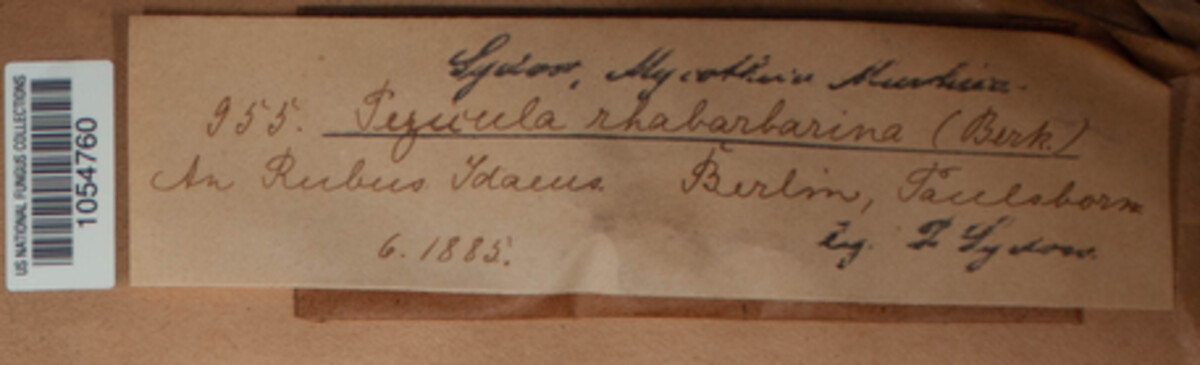 US NATIONAL FUNGUS COLLECTIONS
1054760
Sydow, Mycotheca Marchica.
955. Pezicula rhabarbarina (Berk.)
An Rubus Idaeus. Berlin, Paulsborn
6. 1885. leg. P. Sydow.